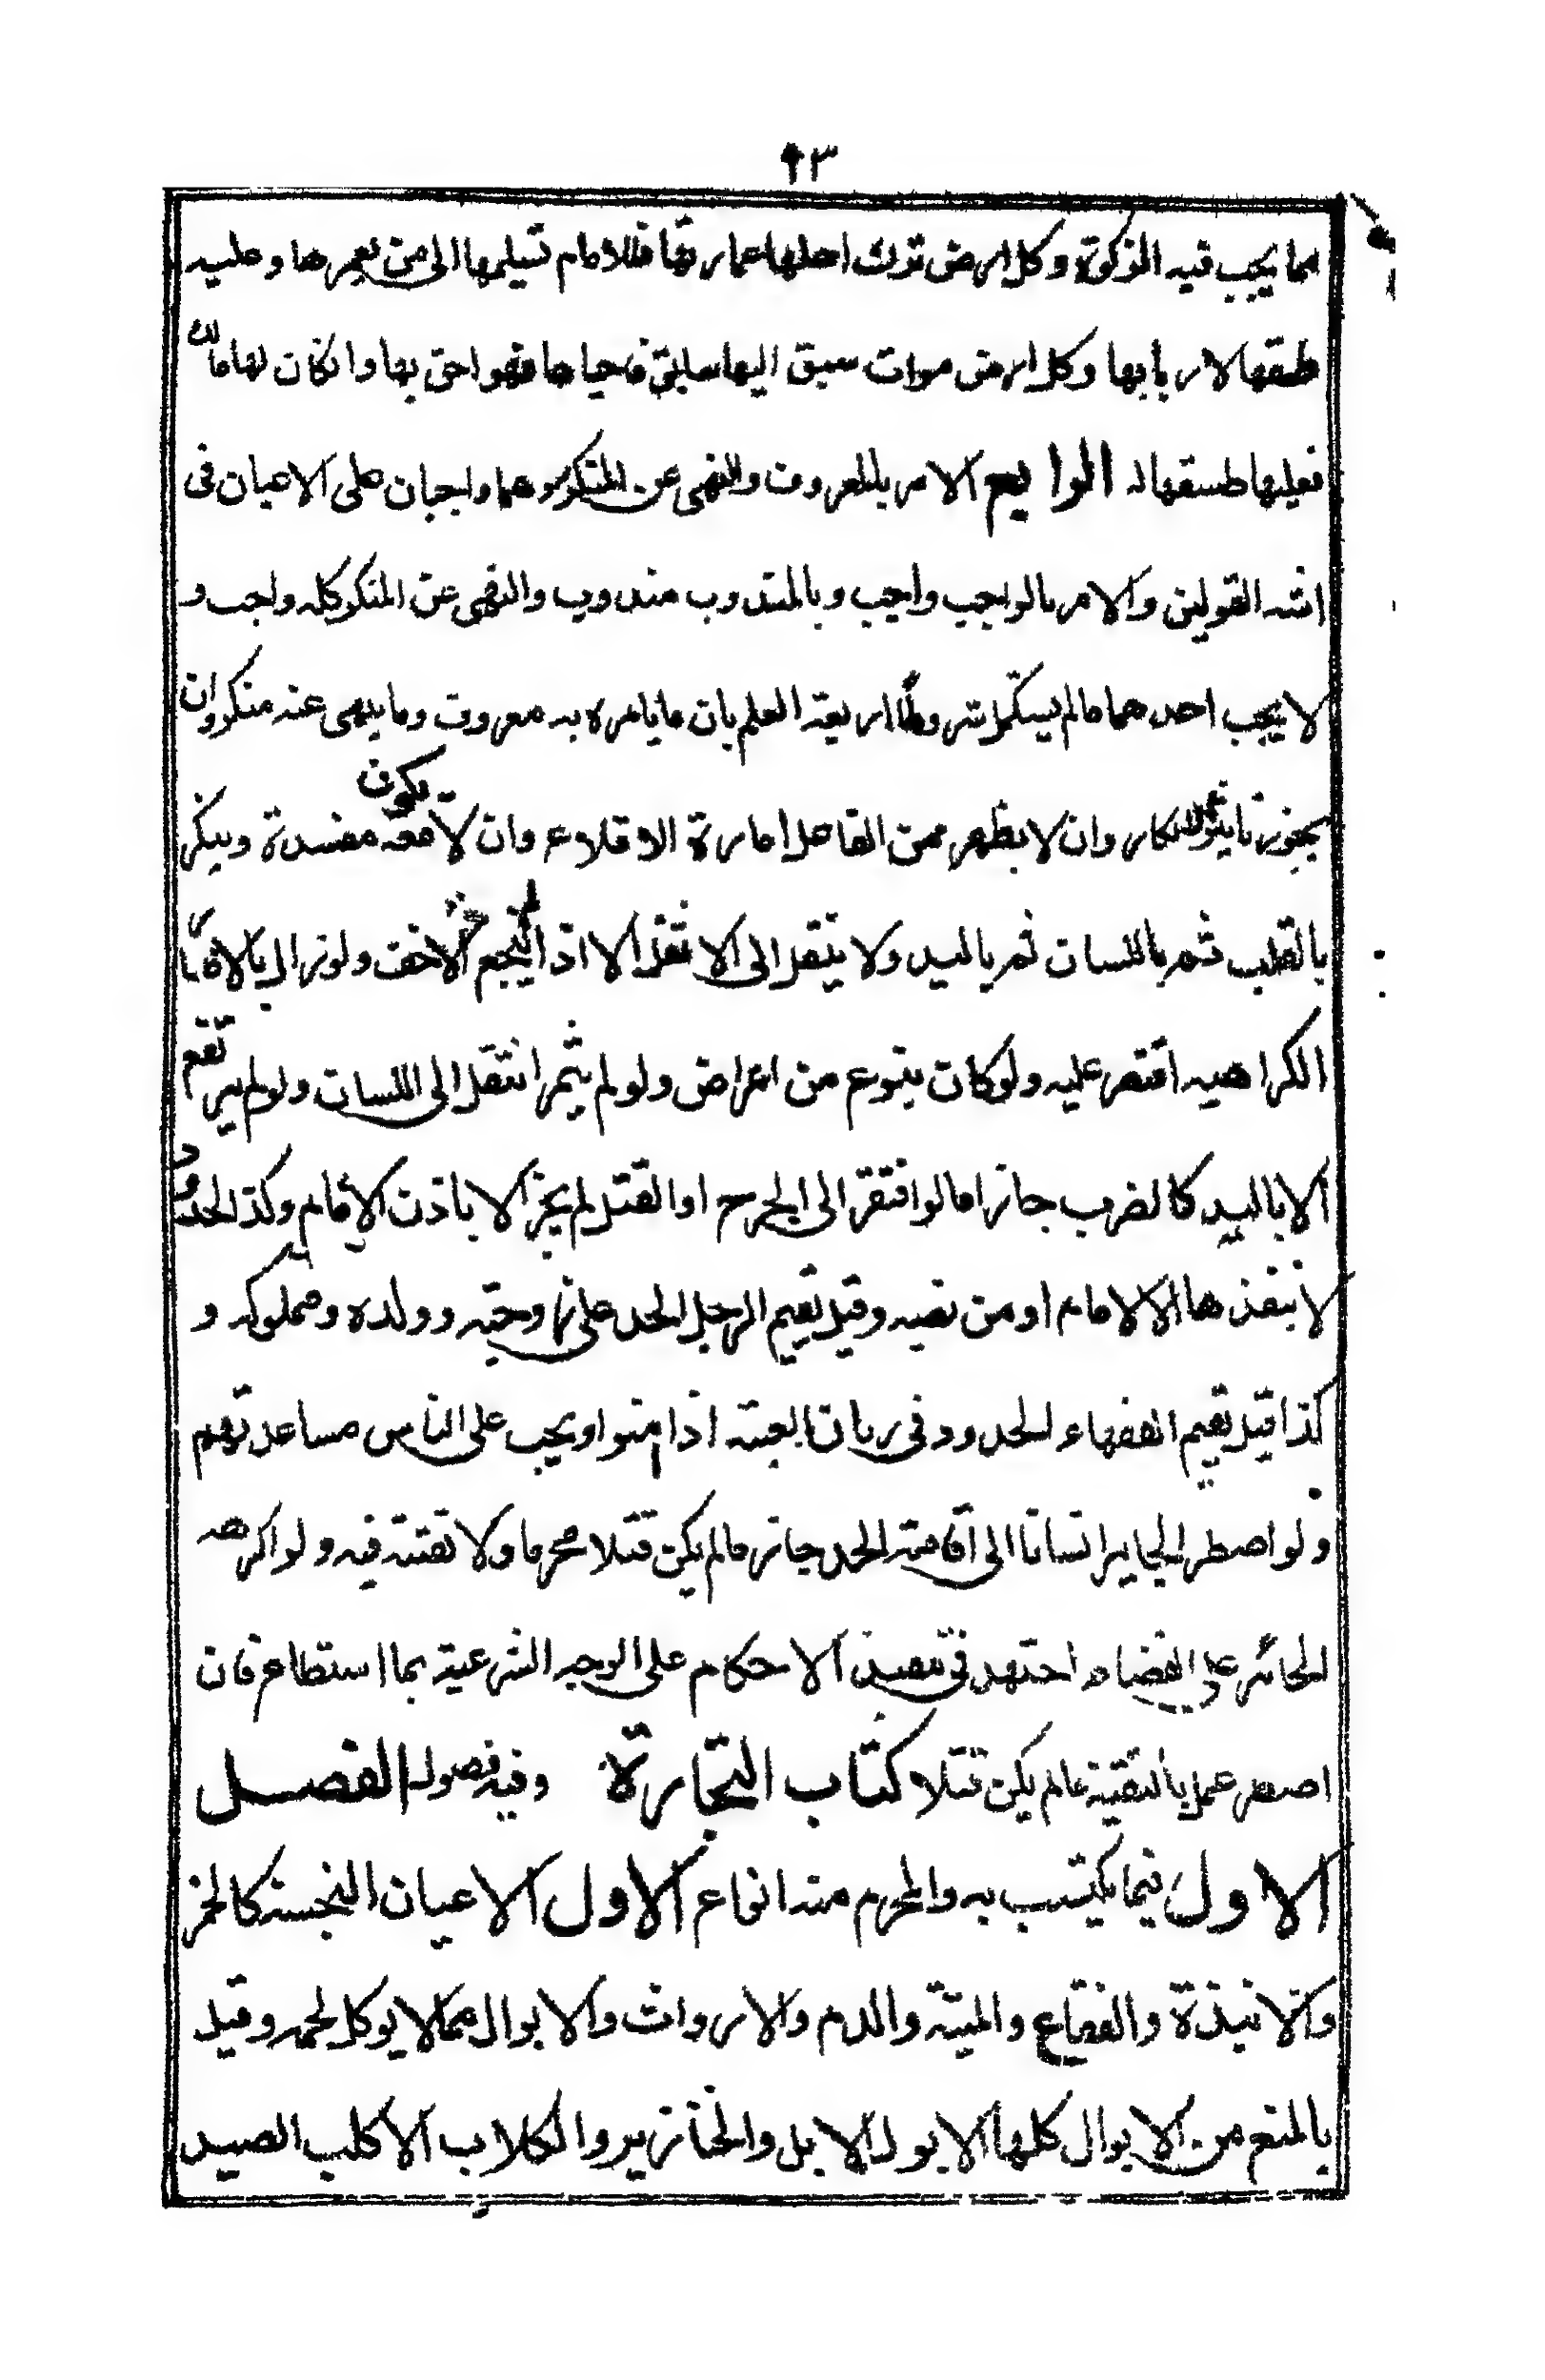 ٩٣
مما يجب فيه الزكوة وكل ارض ترك اهلها عمارتها فللامام تسليمها الى من يعمرها وعليه
طسقها لاربابها وكل ارض موات سبق اليها سابق فاحياها فهو احق بها وانكان لها مالك
فعليها طسقها له الرابع الامر بالمعروف والنهى عن المنكر وهما واجبان على الاعيان فى
اشبه القولين والامر بالواجب واجب وبالمندوب مندوب والنهى عن المنكر كله واجب و
لا يجب احدهما مالم يستكمل شروطا اربعة العلم بان ما يامره به معروف وما ينهى عنه منكر وان
يجوز تاثير الانكار وان لا يظهر من الفاعل امارة الاقلاع وان لا يكون معه مفسدة وينكر
بالقلب ثم باللسان ثم باليد ولا ينتقل الى الاثقل الا اذا لم ينجع الاخف ولو زال باظهار
الكراهيه اقتصر عليه ولو كان بنوع من اعراض ولو لم يثمر انتقل الى اللسان ولو لم يرتفع
الا باليد كالضرب جاز اما لو افتقر الى الجرح او القتل لم يجز الا باذن الامام وكذا الحدود
لا ينفذها الا الامام او من نصبه وقيل يقيم الرجل الحد على زوجته وولده ومملوكه و
كذا قيل يقيم الفقهاء الحدود فى زمان الغيبة اذا امنوا ويجب على الناس مساعدتهم
ولو اضطر الجاير انسانا الى اقامة الحد جاز مالم يكن قتلا محرما ولا تقية فيه ولو اكرهه
الجائر على القضاء اجتهد فى تنفيذ الاحكام على الوجه الشرعية بما استطاع فان
اضطر عمل بالتقية مالم يكن قتلا كتاب التجارة وفيه فصول الفصل
الاول فيما يكتسب به والمحرم منه انواع الاول الاعيان النجسة كالخمر
والانبذة والفقاع والميتة والدم والارواث والابوال مما لا يوكل لحمه وقيل
بالمنع من الابوال كلها الا بول الابل والخنازير والكلاب الا كلب الصيد